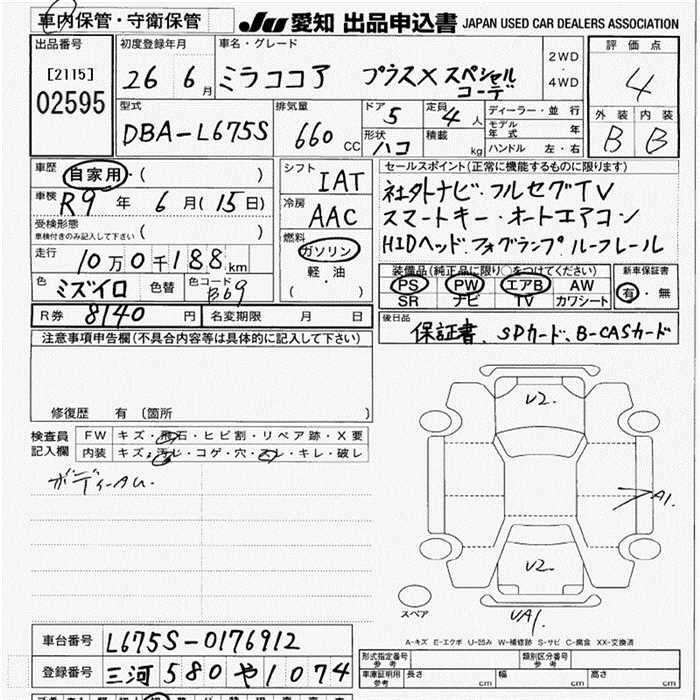 車内保管・守衛保管
JU 愛知 出品申込書 JAPAN USED CAR DEALERS ASSOCIATION
出品番号
[2115]
02595
初度登録年月
26 6月
車名・グレード
ミラココア プラスX スペシャルコーデ
2WD
・
4WD
評価点
4
外装 内装
B B
型式
DBA-L675S
排気量
660 CC
ドア 5
定員 4人
形状 ハコ
積載 kg
ディーラー・並行
モデル年式 年
ハンドル 左・右
車歴 自家用・( )
車検 R9年 6月(15日)
受検形態
車検付きのみ記入して下さい ( )
走行 10万0千188km
色 ミズイロ 色替 色コード B69
R券 8140円 名変期限 月 日
シフト IAT
冷房 AAC
燃料
ガソリン
軽・油
( )
セールスポイント(正常に機能するものに限ります)
社外ナビ・フルセグTV
スマートキー・オートエアコン
HIDヘッド・フォグランプ ルーフレール
装備品(純正品に限り○をつけてください)
PS PW エアB AW
SR ナビ TV カワシート
新車保証書
有・無
後日品
保証書、SDカード、B-CASカード
注意事項申告欄(不具合内容等は具体的に記入して下さい)
修復歴 有 〔箇所 〕
検査員
記入欄
FW キズ・飛石・ヒビ割・リペア跡・X要
内装 キズ・汚レ・コゲ・穴・スレ・キレ・破レ
V2.
A1.
V2.
UA1.
スペア
A-キズ E-エクボ U-凹み W-補修跡 S-サビ C-腐食 XX-交換済
車台番号 L675S-0176912
登録番号 三河 580 や 1074
形式指定番号
参考
類別区分番号
参考
車庫証明用
参考
長さ cm 幅 cm 高さ cm